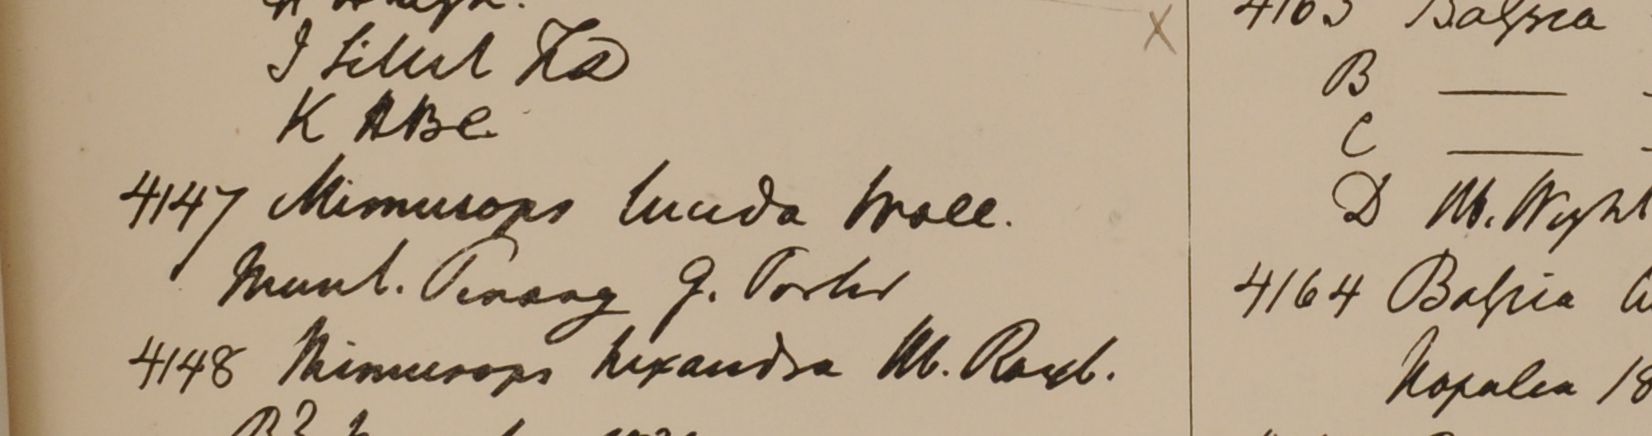 I Silhet
K HBC.
4147 Mimusops lucida Wall.
Mont. Penang G. Porter
4148 Mimusops hexandra Hb. Roxb.
4163 Bassia
B ———
C ———
D Hb. Wight
4164 Bassia
Napalia 18